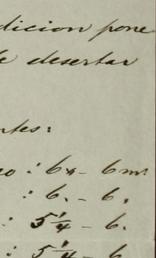 dicion pone
e desertar
rtes:
o : 6 n - 6 m
: 6. - 6.
: 5 1/4 - 6.
: 5 1/4 - 6